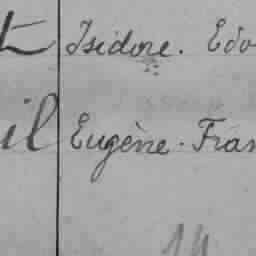 t Isidore. Edo
il Eugène. Fran
14